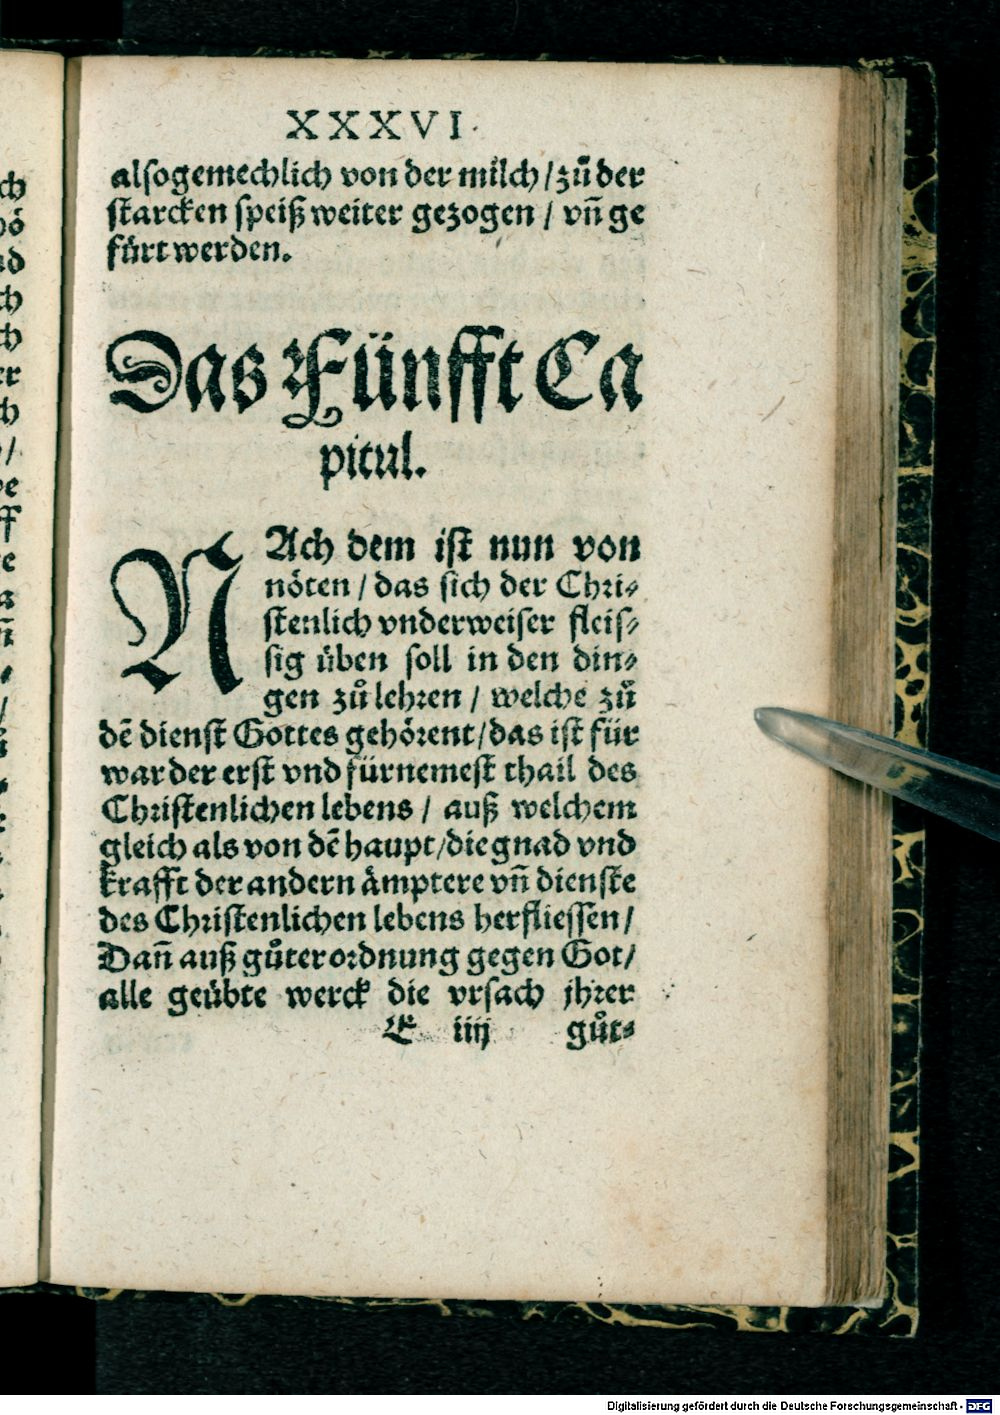 XXXVI.
alsogemechlich von der milch/zů der
starcken speiß weiter gezogen / vñ ge
fürt werden.
Das Fünfft Ca
pitul.
NAch dem ist nun von
nöten / das sich der Chri-
stenlich vnderweiser fleis-
sig üben soll in den din-
gen zů lehren / welche zů
dẽ dienst Gottes gehörent/das ist für
war der erst vnd fürnemest thail des
Christenlichen lebens / auß welchem
gleich als von dẽ haupt/die gnad vnd
krafft der andern ämptere vñ dienste
des Christenlichen lebens herfliessen/
Dañ auß gůter ordnung gegen Got/
alle geübte werck die vrsach jhrer
E iiij gůt-
Digitalisierung gefördert durch die Deutsche Forschungsgemeinschaft - DFG